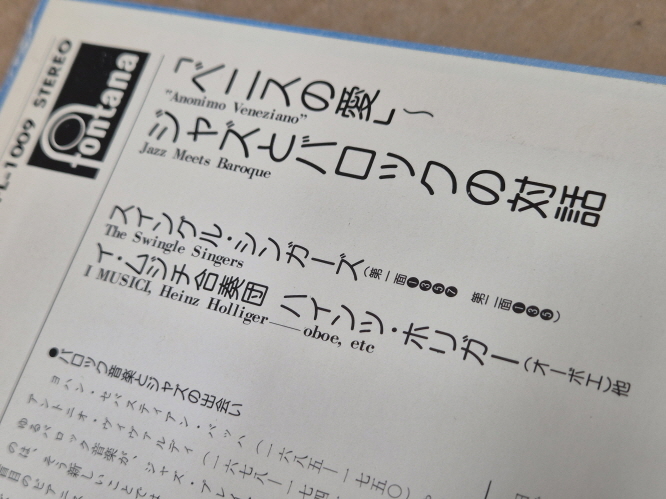 STEREO
fontana
「ベニスの愛」～
"Anonimo Veneziano"
ジャズとバロックの対話
Jazz Meets Baroque
スイングル・シンガーズ(第一面❶❸❺❼ 第二面❶❸❺)
The Swingle Singers
イ・ムジチ合奏団 ハインツ・ホリガー(オーボエ)他
I MUSICI, Heinz Holliger——oboe, etc
●バロック音楽とジャズの出会い
ヨハン・セバスティアン・バッハ(一六八五—一七五〇)
アントニオ・ヴィヴァルディ(一六七八—一七四
ゆるバロック音楽が、ジャズ・プレイ
のは、そう新しいことでは
盲目のピアニス